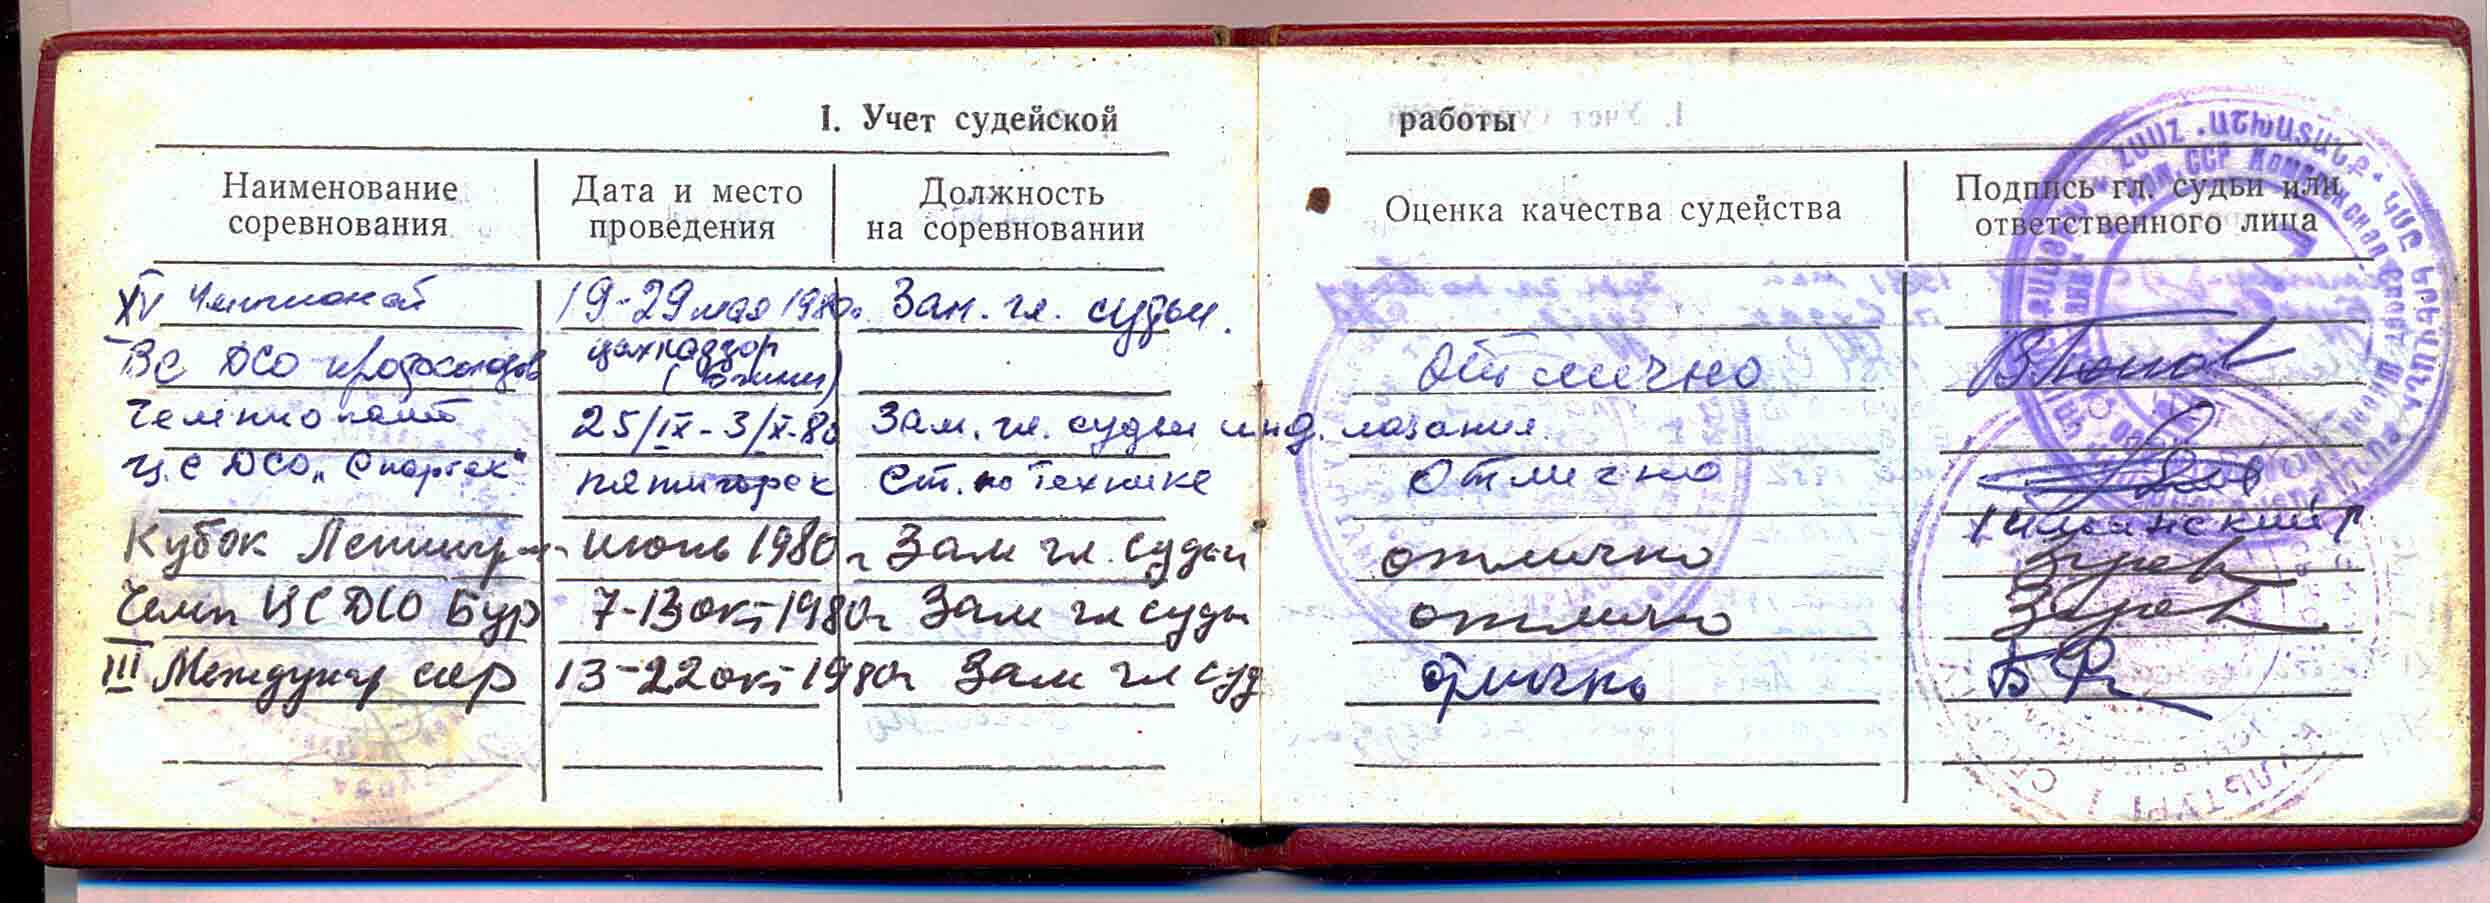 I. Учет судейской работы
Наименование соревнования
Дата и место проведения
Должность на соревновании
Оценка качества судейства
Подпись гл. судьи или ответственного лица
XV Чемпионат 19-29 мая 1980г. Зам. гл. судьи.
ВС ДСО профсоюзов Цахкадзор отлично
Чемпионат 25/IX-3/X-80 Зам. гл. судьи инд. лазания
ЦС ДСО „Спартак" Пятигорск Ст. по технике отлично
Кубок июнь 1980г Зам гл. судьи отлично
Чемп ЦС ДСО Бур 7-13 окт 1980г Зам гл судьи отлично
III Междунар сор 13-22 окт 1980г Зам гл суд отлично